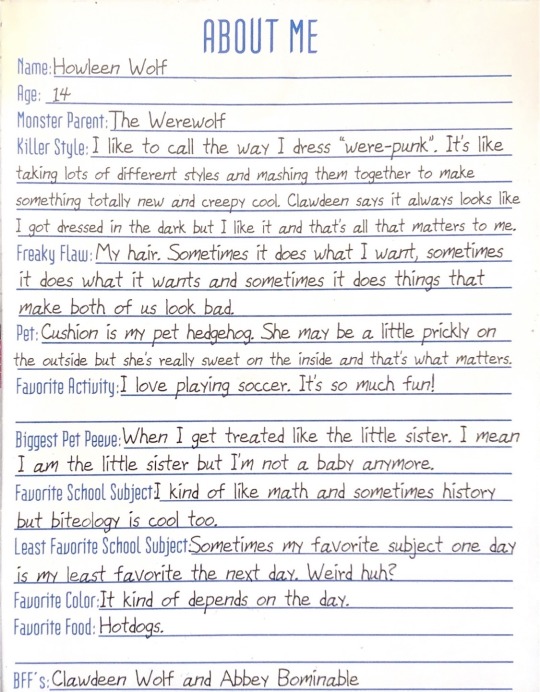 ABOUT ME
Name: Howleen Wolf
Age: 14
Monster Parent: The Werewolf
Killer Style: I like to call the way I dress "were-punk". It's like
taking lots of different styles and mashing them together to make
something totally new and creepy cool. Clawdeen says it always looks like
I got dressed in the dark but I like it and that's all that matters to me.
Freaky Flaw: My hair. Sometimes it does what I want, sometimes
it does what it wants and sometimes it does things that
make both of us look bad.
Pet: Cushion is my pet hedgehog. She may be a little prickly on
the outside but she's really sweet on the inside and that's what matters.
Favorite Activity: I love playing soccer. It's so much fun!
Biggest Pet Peeve: When I get treated like the little sister. I mean
I am the little sister but I'm not a baby anymore.
Favorite School Subject I kind of like math and sometimes history
but biteology is cool too.
Least Favorite School Subject: Sometimes my favorite subject one day
is my least favorite the next day. Weird huh?
Favorite Color: It kind of depends on the day.
Favorite Food: Hotdogs.
BFF's: Clawdeen Wolf and Abbey Bominable